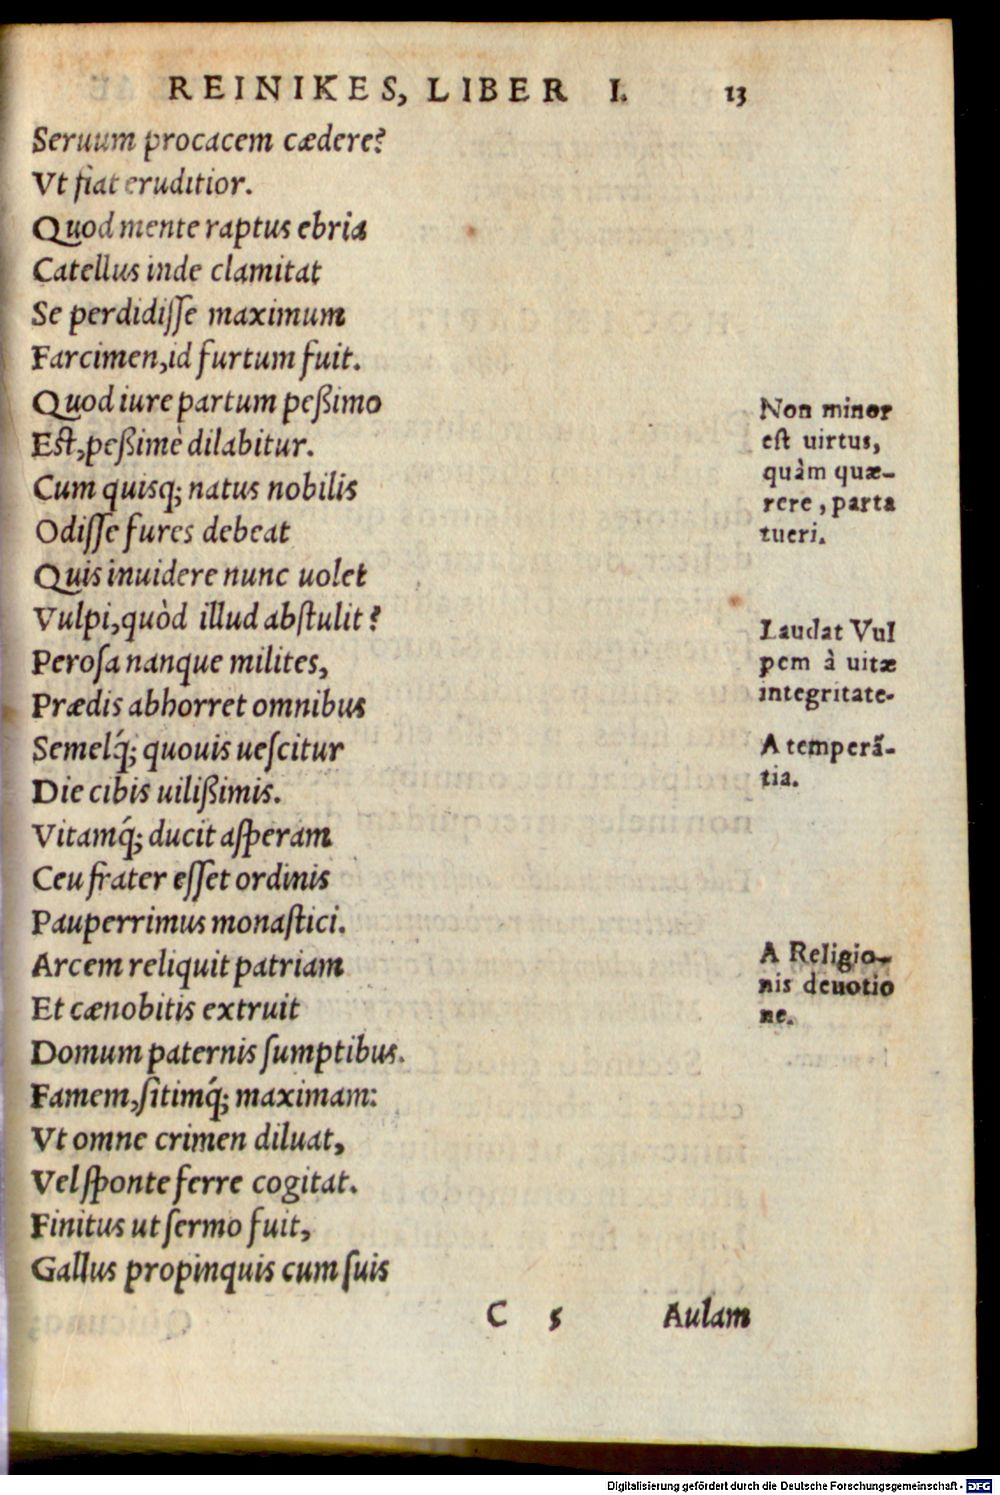 REINIKES, LIBER I. 13
Seruum procacem cædere?
Vt fiat eruditior.
Quod mente raptus ebria
Catellus inde clamitat
Se perdidiſſe maximum
Farcimen,id furtum fuit.
Quod iure partum peßimo
Eſt,peßimè dilabitur.
Cum quisq; natus nobilis
Odiſſe fures debeat
Quis inuidere nunc uolet
Vulpi,quòd illud abſtulit?
Peroſa nanque milites,
Prædis abhorret omnibus
Semelq́; quouis ueſcitur
Die cibis uilißimis.
Vitamq́; ducit aſperam
Ceu frater eſſet ordinis
Pauperrimus monaſtici.
Arcem reliquit patriam
Et cænobitis extruit
Domum paternis ſumptibus.
Famem,ſitimq́; maximam:
Vt omne crimen diluat,
Vel ſponte ferre cogitat.
Finitus ut ſermo fuit,
Gallus propinquis cum ſuis
Non minor
eſt uirtus,
quàm quæ-
rere, parta
tueri.
Laudat Vul
pem à uitæ
integritate.
A temperã-
tia.
A Religio-
nis deuotio
ne.
C 5 Aulam
Digitalisierung gefördert durch die Deutsche Forschungsgemeinschaft - DFG